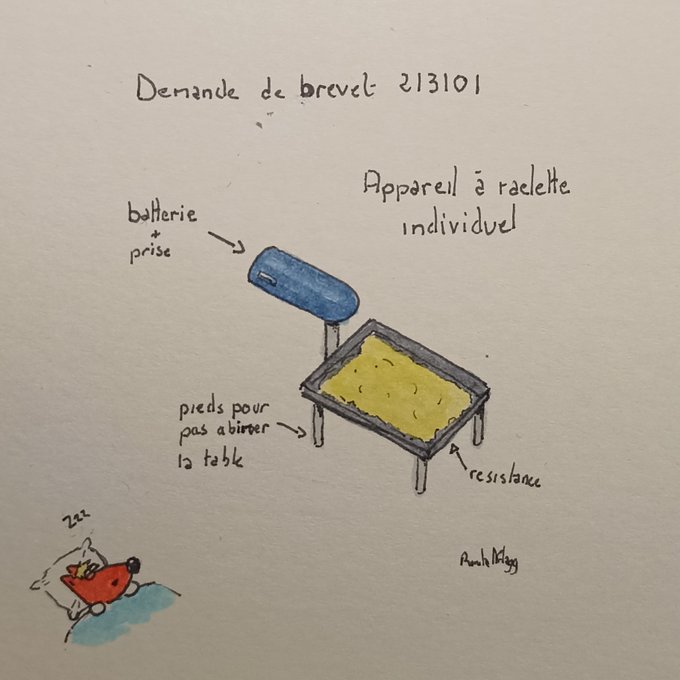 Demande de brevet 213101
Appareil à raclette
individuel
batterie
+
prise
pieds pour
pas abimer
la table
resistance
Zzz